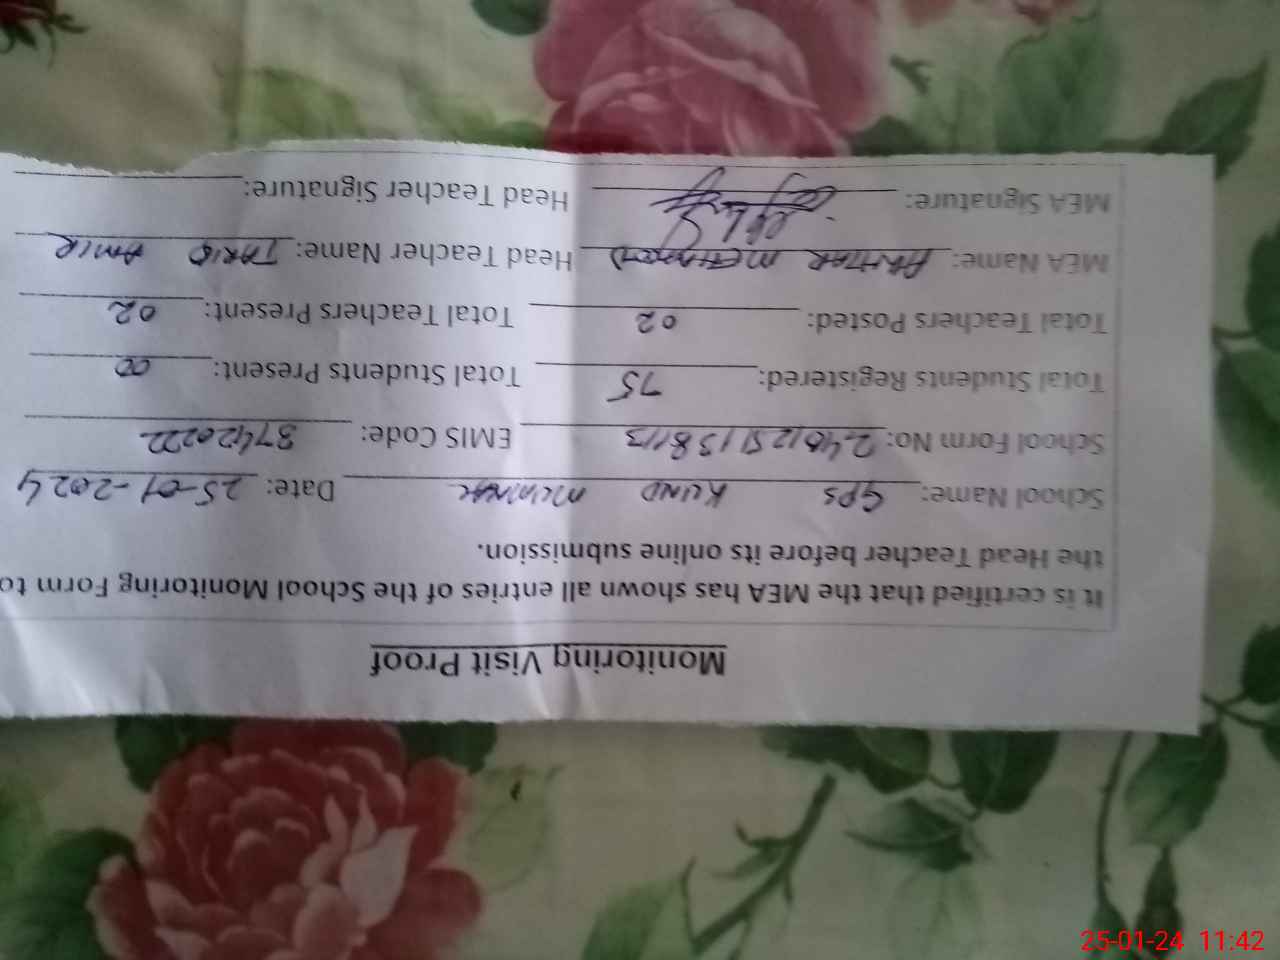 Monitoring Visit Proof
It is certified that the MEA has shown all entries of the School Monitoring Form to
the Head Teacher before its online submission.
School Name: GPS KUND Date: 25-01-2024
School Form No: EMIS Code: 37420222
Total Students Registered: 75 Total Students Present: 00
Total Teachers Posted: 02 Total Teachers Present: 02
MEA Name: MEHMOOD Head Teacher Name: TARIQ AMIR
MEA Signature: Head Teacher Signature:
25-01-24 11:42